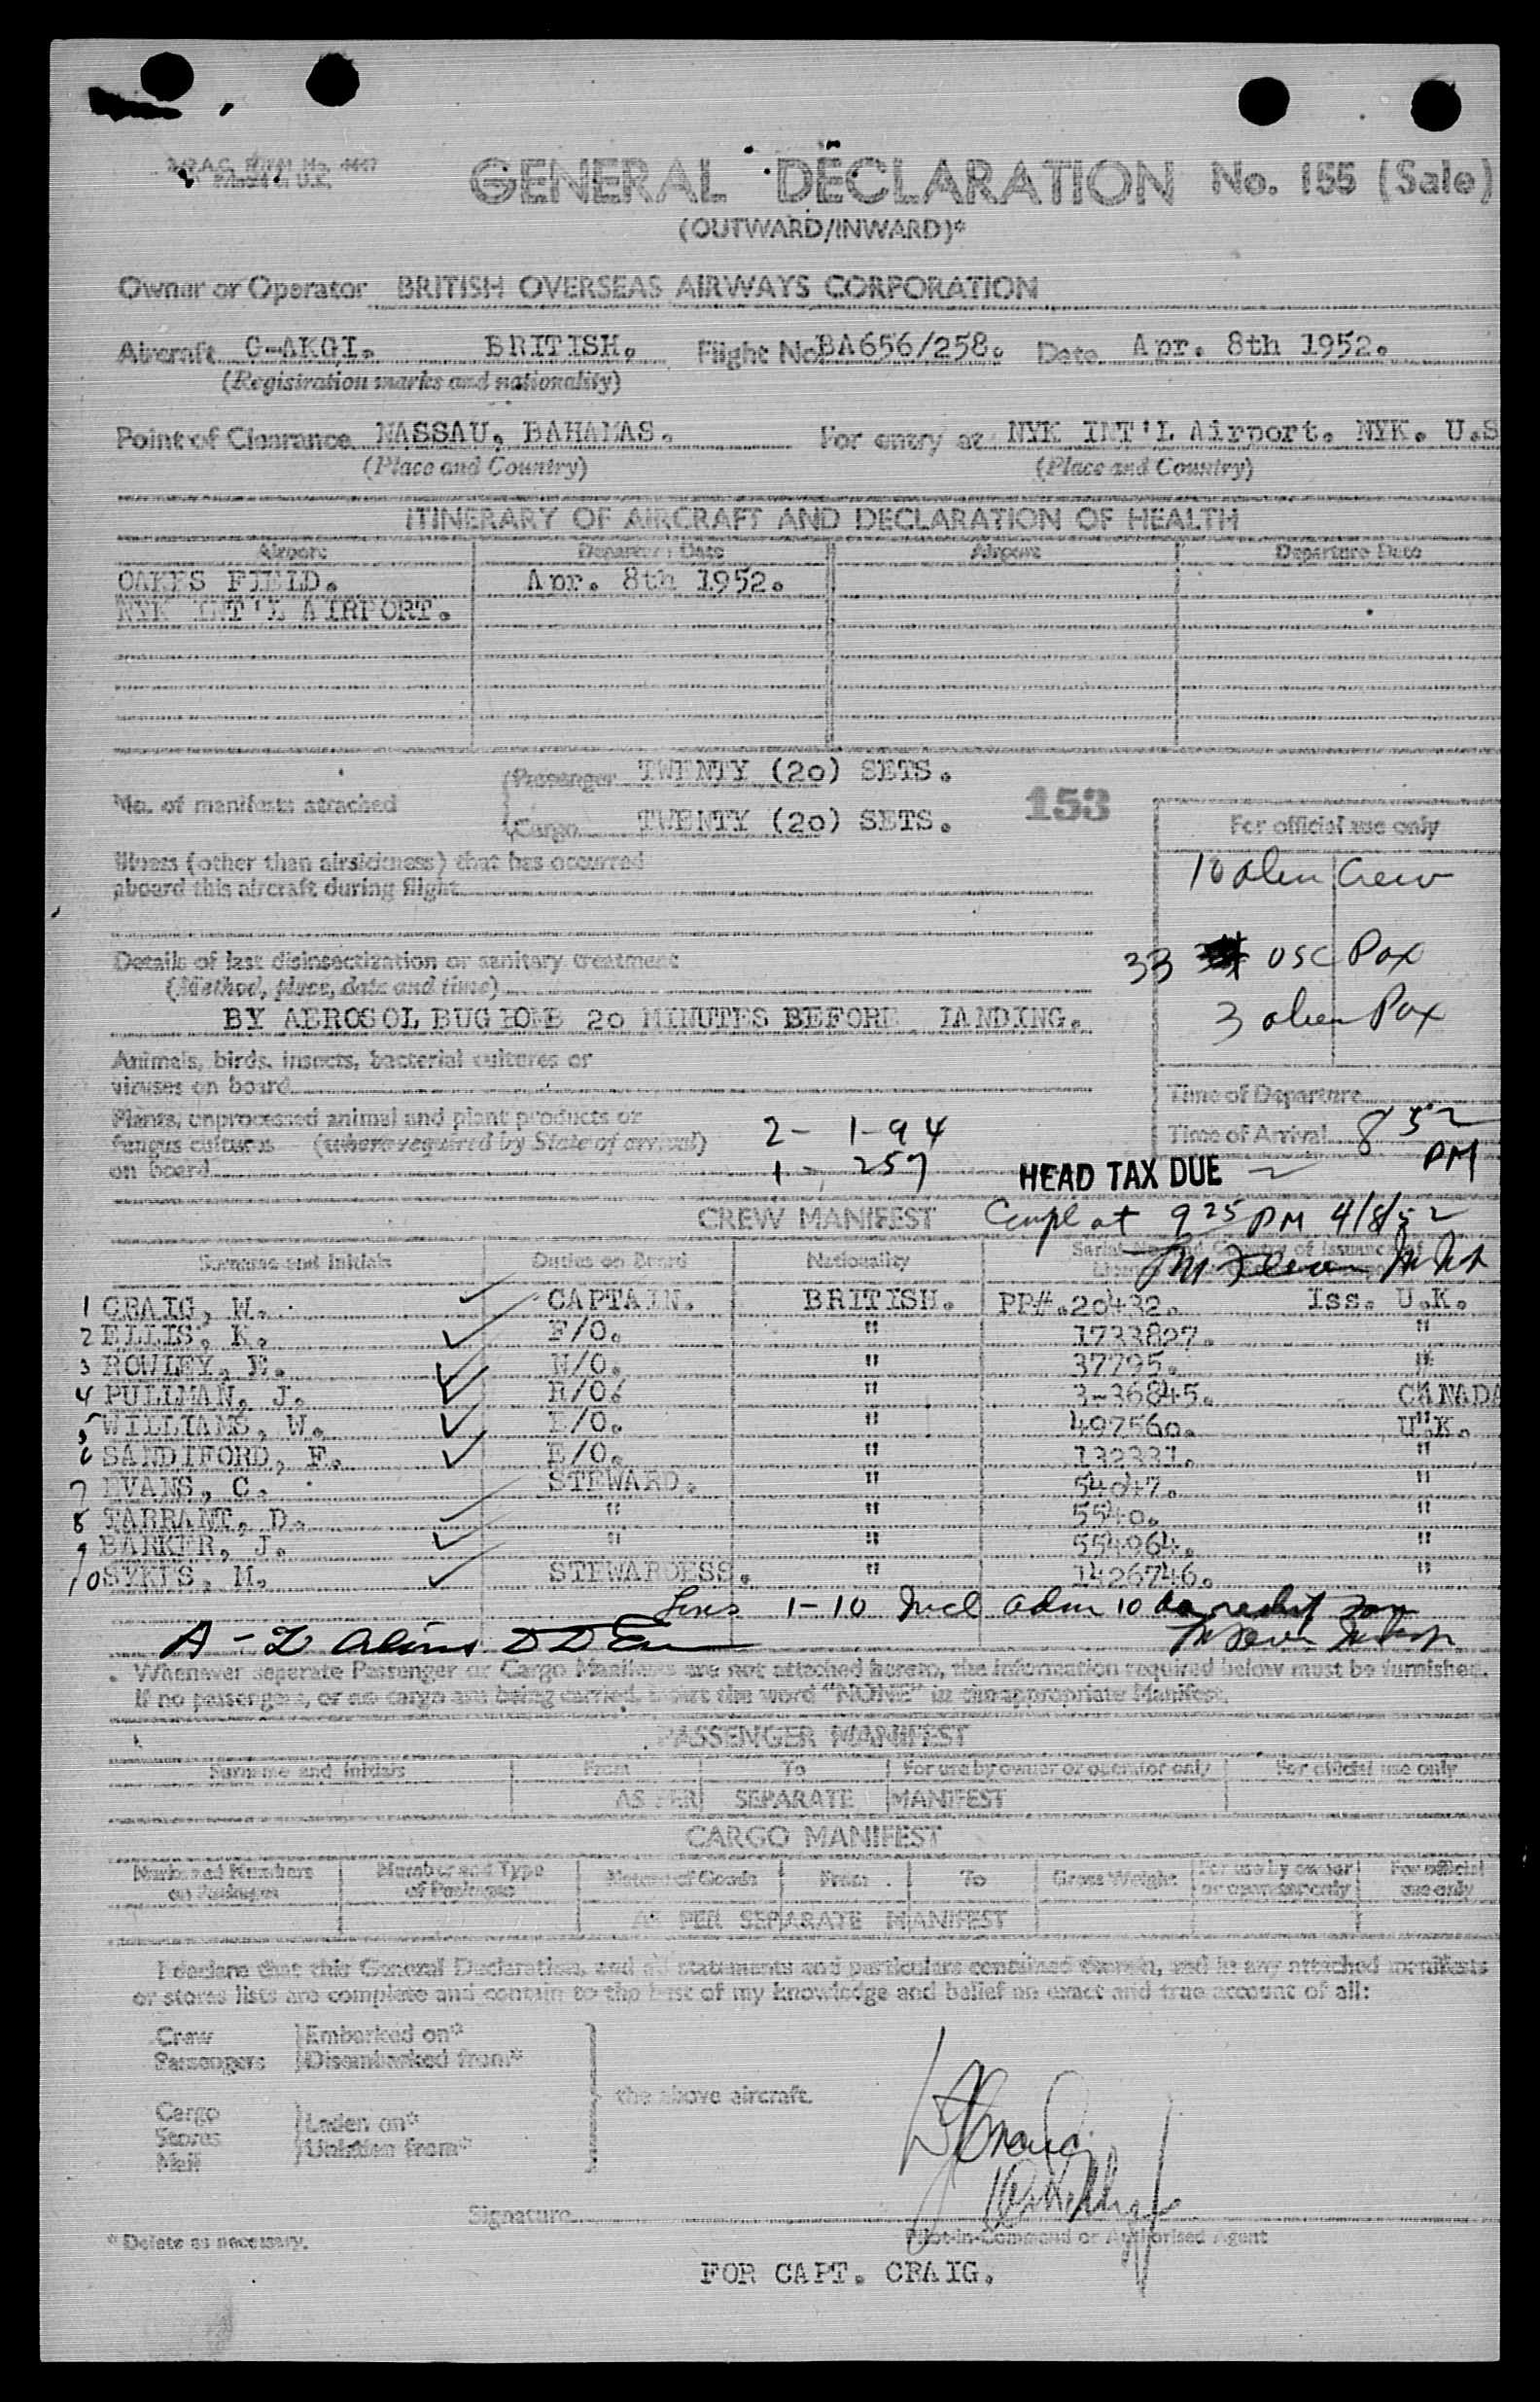 B.O.A.C. FORM No. 4447
Printed in U.K.
GENERAL DECLARATION No. 155 (Sale)
(OUTWARD/INWARD)*
Owner or Operator BRITISH OVERSEAS AIRWAYS CORPORATION
Aircraft G-AKGI. BRITISH. Flight No. BA656/258. Date Apr. 8th 1952.
(Registration marks and nationality)
Point of Clearance NASSAU, BAHAMAS. For entry at NYK INT'L Airport. NYK. U.S
(Place and Country) (Place and Country)
ITINERARY OF AIRCRAFT AND DECLARATION OF HEALTH
Airport Departure Date Airport Departure Date
OAKES FIELD. Apr. 8th 1952.
NYK INT'L AIRPORT.
No. of manifests attached
Passenger TWENTY (20) SETS.
Cargo TWENTY (20) SETS.
153
For official use only
10 alien Crew
33 USC Pax
3 alien Pax
Illness (other than airsickness) that has occurred
aboard this aircraft during flight
Details of last disinsectization or sanitary treatment
(Method, place, date and time)
BY AEROSOL BUG BOMB 20 MINUTES BEFORE LANDING.
Animals, birds, insects, bacterial cultures or
viruses on board
Time of Departure
Plants, unprocessed animal and plant products or
fungus cultures (where required by State of arrival)
on board
2- 1-94
1- 257
Time of Arrival 8 52 PM
HEAD TAX DUE
CREW MANIFEST Compl at 9 25 PM 4/8/52
Surname and Initials Duties on Board Nationality Serial No. and Country of Issuance of
1 CRAIG, W. CAPTAIN. BRITISH. PP#.20432. Iss. U.K.
2 ELLIS, K. F/O. " 1733827. "
3 ROWLEY, E. N/O. " 37795. "
4 PULLMAN, J. R/O. " 3-36845. CANADA
5 WILLIAMS, W. E/O. " 497560. U.K.
6 SANDIFORD, F. E/O. " 132331. "
7 EVANS, C. STEWARD. " 54047. "
8 TARRANT, D. " " 5540. "
9 BARKER, J. " " 554964. "
10 SYKES, M. STEWARDESS. " 1426746. "
Lines 1-10 Incl adm 10
Whenever separate Passenger or Cargo Manifests are not attached hereto, the information required below must be furnished.
If no passengers, or no cargo are being carried, insert the word "NONE" in the appropriate Manifest.
PASSENGER MANIFEST
Surname and Initials From To For use by owner or operator only For official use only
AS PER SEPARATE MANIFEST
CARGO MANIFEST
Marks and Numbers on Packages Number and Type of Packages Nature of Goods From To Gross Weight For use by owner or operator only For official use only
AS PER SEPARATE MANIFEST
I declare that this General Declaration, and all statements and particulars contained therein, and in any attached manifests
or stores lists are complete and contain to the best of my knowledge and belief an exact and true account of all:
Crew Embarked on*
Passengers Disembarked from*
the above aircraft.
Cargo Laden on*
Stores Unladen from*
Mail
Signature
Pilot-in-Command or Authorised Agent
* Delete as necessary.
FOR CAPT. CRAIG.